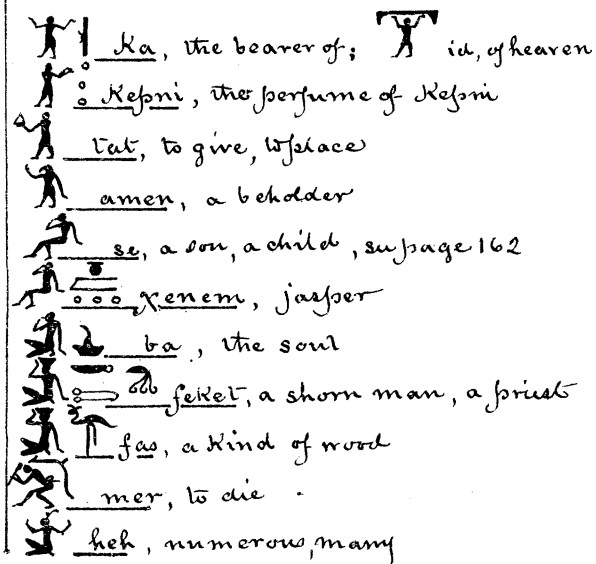 Ka, the bearer of; id, of heaven
Kepni, the perfume of Kepni
tat, to give, to place
amen, a beholder
se, a son, a child, see page 162
χenem, jasper
ba, the soul
feket, a shorn man, a priest
fas, a kind of wood
mer, to die
heh, numerous, many